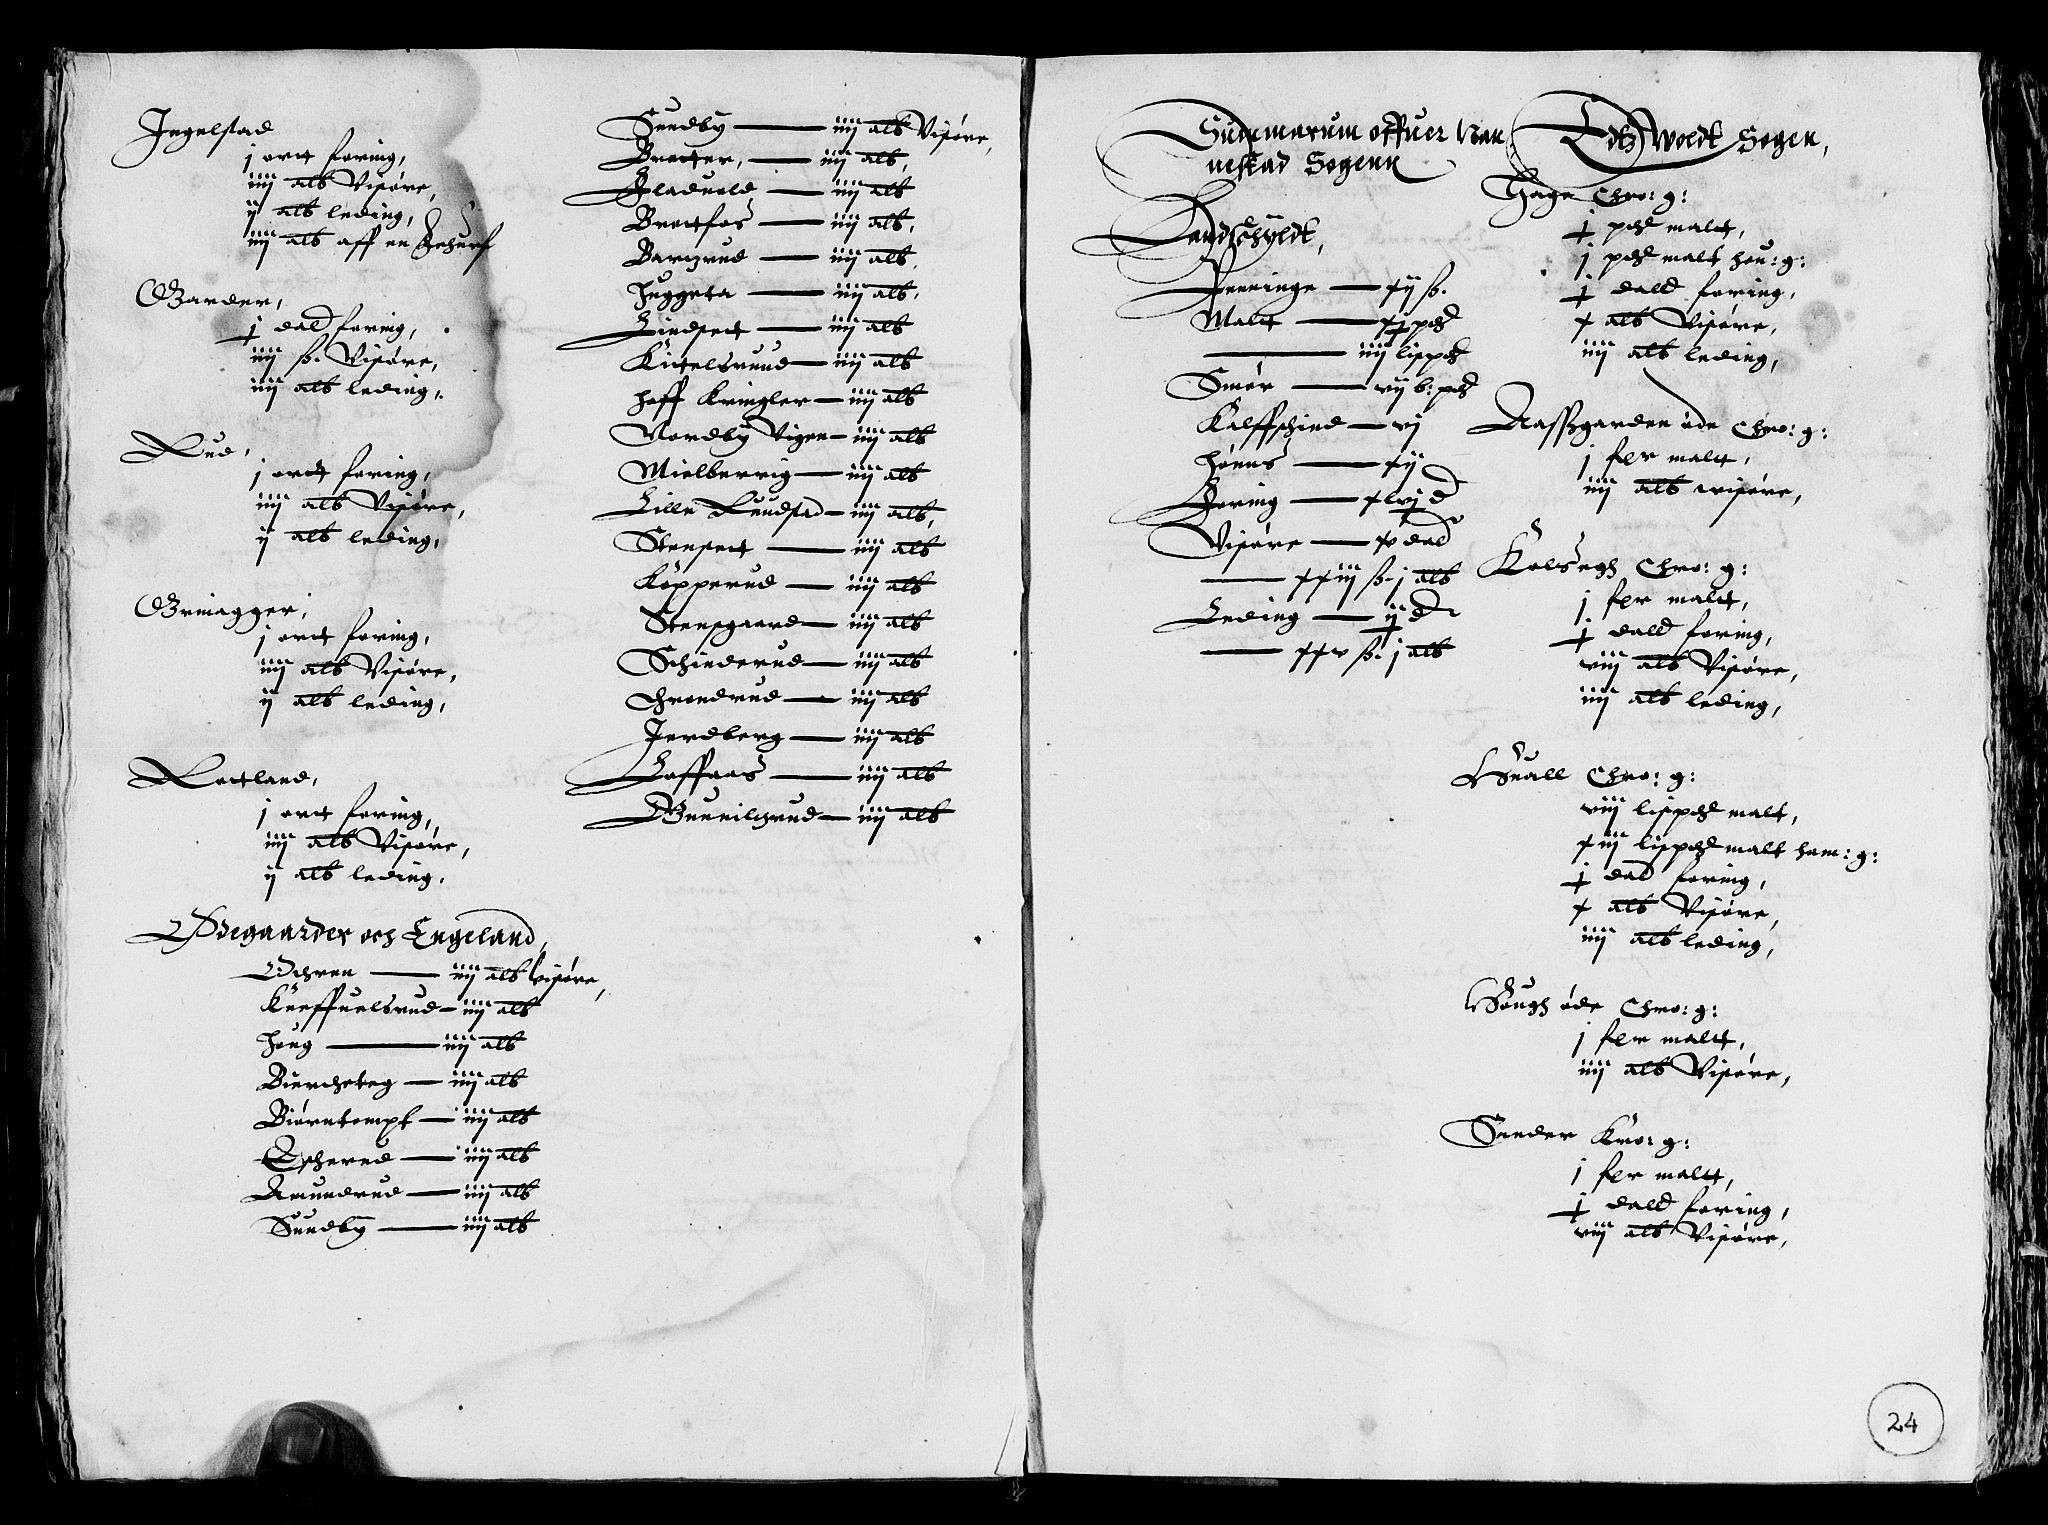 Jngelstad
j ortt foring,
iiij alb Visøre,
ij alb leding,
iiij alb aff en
Garder,
j dald foring,
iiij ß. Visøre,
iiij alb leding,
Rud,
j ortt foring,
iiij alb Visøre,
ij alb leding,
Grinagger,
j ortt foring,
iiij alb Visøre,
ij alb leding,
Rottland,
j ortt foring,
iiij alb Visøre,
ij alb leding,
Ødegaarder och Engeland,
Ochren — iiij alb Visøre,
Kneffuelsrud — iiij alb
Houg — iiij alb
Biercheteg — iiij alb
Biørntompt — iiij alb
Escherud — iiij alb
Amundrud — iiij alb
Sundby — iiij alb
Sundby — iiij alb Visøre,
Bretter, — iiij alb,
Fladuold — iiij alb
Brottfos — iiij alb,
Bargrud — iiij alb,
Huggeta — iiij alb,
Lindsett — iiij alb
Kittelsrud — iiij alb
Hoff Kringler — iiij alb
Nordby Vigen — iiij alb
Mielberrig — iiij alb
Lille Rundstad — iiij alb,
Stensett — iiij alb
Kopperud — iiij alb
Stensgaard — iiij alb
Schinderud — iiij alb
Throndrud — iiij alb
Jerdberg — iiij alb
Loffaas — iiij alb
Gunnilsrud — iiij alb
Summarum offuer Nan
nestad Sogenn
Landschyldt,
Penninge — xij ß.
Maltt — pd
— iiij lispd
Smør — vij b: pd
Kalffschind — vj
Høns — xij
Foring — xlvj d
Visøre — xv dald
— xxiij ß. j alb
Leding — ij d
— xxv ß. j alb
Edtzwoldt Sogen,
Hage Chro: g:
j pd maltt,
j pd malt hou: g:
j dald foring,
x alb Visøre,
iiij alb leding,
Aassgarden øde Chro: g:
j fer maltt,
iiij alb visøre,
Kolsegh Chro: g:
j fer maltt,
j dald foring,
viij alb Visøre,
iiij alb leding,
Huall Chro: g:
viij lispd malt,
xiij lispd malt ham: g:
j dald foring,
x alb Visøre,
iiij alb leding,
Hough øde Chro: g:
j fer maltt,
iiij alb Visøre,
Sander Kro: g:
j fer maltt,
j dald foring,
viij alb Visøre,
24